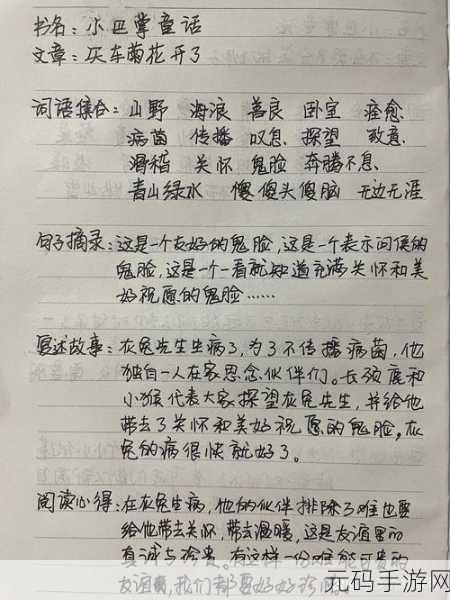 书名：小巴掌童话
文章：矢车菊花开了
词语集合：山野 海浪 善良 卧室 痊愈
病菌 传播 叹息 探望 致意
滑稽 关怀 鬼脸 奔腾不息
青山绿水 傻傻头傻脑 无边无涯
句子摘录：这是一个友好的鬼脸，这是一个表示问候的
鬼脸，这是一个一看就知道充满关怀和美
好祝愿的鬼脸……
复述故事：灰兔先生生病了，为了不传播病菌，他
独自一人在家思念伙伴们。长颈鹿和
小猴代表大家探望灰兔先生，并给他
带去了关怀和美好祝愿的鬼脸。灰
兔的病很快就好了。
阅读心得：在灰兔生病，他的伙伴排除了难也要
给他带去关怀，带去温暖，这是友谊里的
真诚与珍贵。有这样一份难能可贵的
友谊，我们都要好好珍
元码手游网